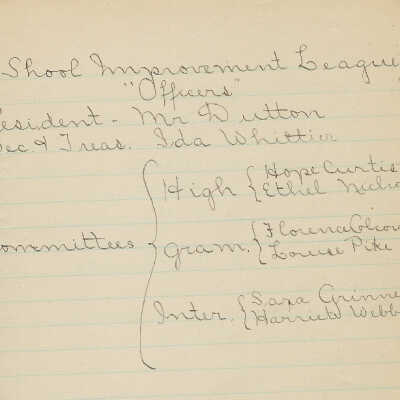 Shool Improvement League
"Officers"
esident - Mr Dutton
ec & Treas. Ida Whittier
High { Hope Curtis
Ethel
ommittees { Gram. { Florence
Louise Pike
Inter. { Sara Grinne
Harriet Webb